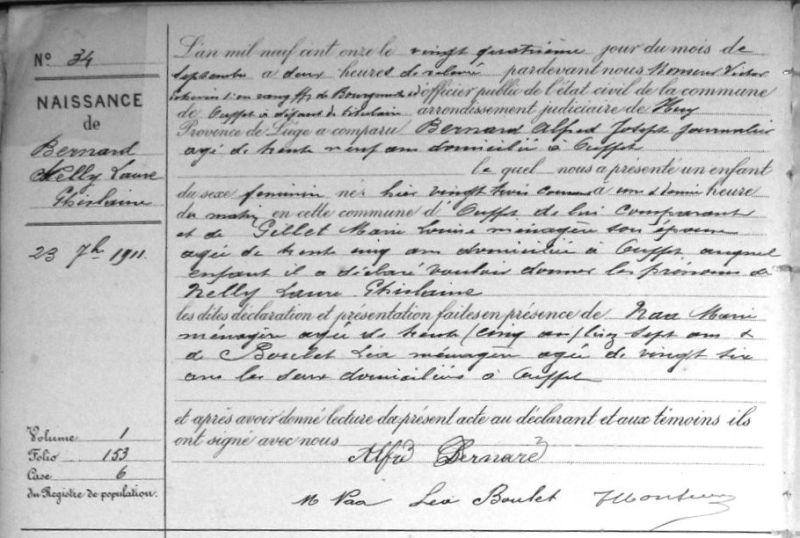 N° 34
NAISSANCE
de
Bernard
Nelly Laure
Ghislaine
23 7bre 1911.
Volume 1
Folio 153
Case 6
du Registre de population.
L'an mil neuf cent onze le vingt quatrième jour du mois de
Septembre a deux heures de relevée pardevant nous Monseur Victor
échevin f. de Bourgmestre officier public de l'état civil de la commune
de Ouffet à défaut de titulaire arrondissement judiciaire de Huy
Province de Liège a comparu Bernard Alfred Joseph Journalier
agé de trente neuf ans domicilié à Ouffet
le quel nous a présenté un enfant
du sexe féminin né hier vingt trois courant à une & demie heure
du matin en cette commune d'Ouffet de lui comparant
et de Gillet Marie Louise ménagère son épouse
agée de trente cinq ans domiciliée à Ouffet auquel
enfant il a déclaré vouloir donner les prénoms de
Nelly Laure Ghislaine
les dites déclaration et présentation faites en présence de Naa Marie
ménagère agée de trente (cinq ans) sept ans &
de Boulet Léa ménagère agée de vingt six
ans les deux domiciliés à Ouffet
et après avoir donné lecture du présent acte au déclarant et aux témoins ils
ont signé avec nous
Alfred Bernard
M Naa Lea Boulet VMonseur